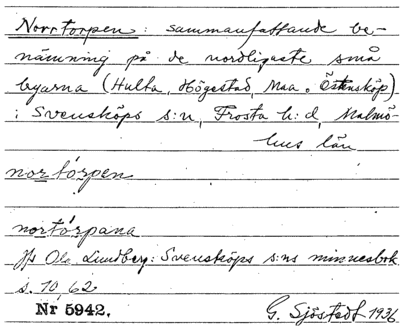 Norrtorpen: sammanfattande be-
nämning på de nordligaste små
byarna (Hulta, Högestad, Maa o. Östensköp)
i Svensköps s:n, Frosta h:d, Malmö-
hus län
nortórpen
nortórpana
jfr Ola Lundberg: Svensköps s:ns minnesbok
s. 10, 62
Nr 5942. G. Sjöstedt 1936